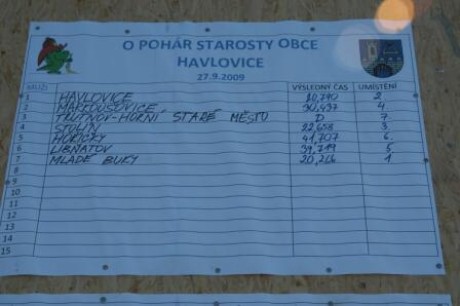 O POHÁR STAROSTY OBCE
HAVLOVICE
27.9.2009
MUŽI VÝSLEDNÝ ČAS UMÍSTĚNÍ
1 HAVLOVICE 2
2 MARKOUŠOVICE 4
3 TRUTNOV-HORNÍ STARÉ MĚSTO D 7
4 STOLÍN 22,658 3
5 HOŘIČKY 41,707 6
6 LIBŇATOV 39,719 5
7 MLADÉ BUKY 20,266 1
8
9
10
11
12
13
14
15